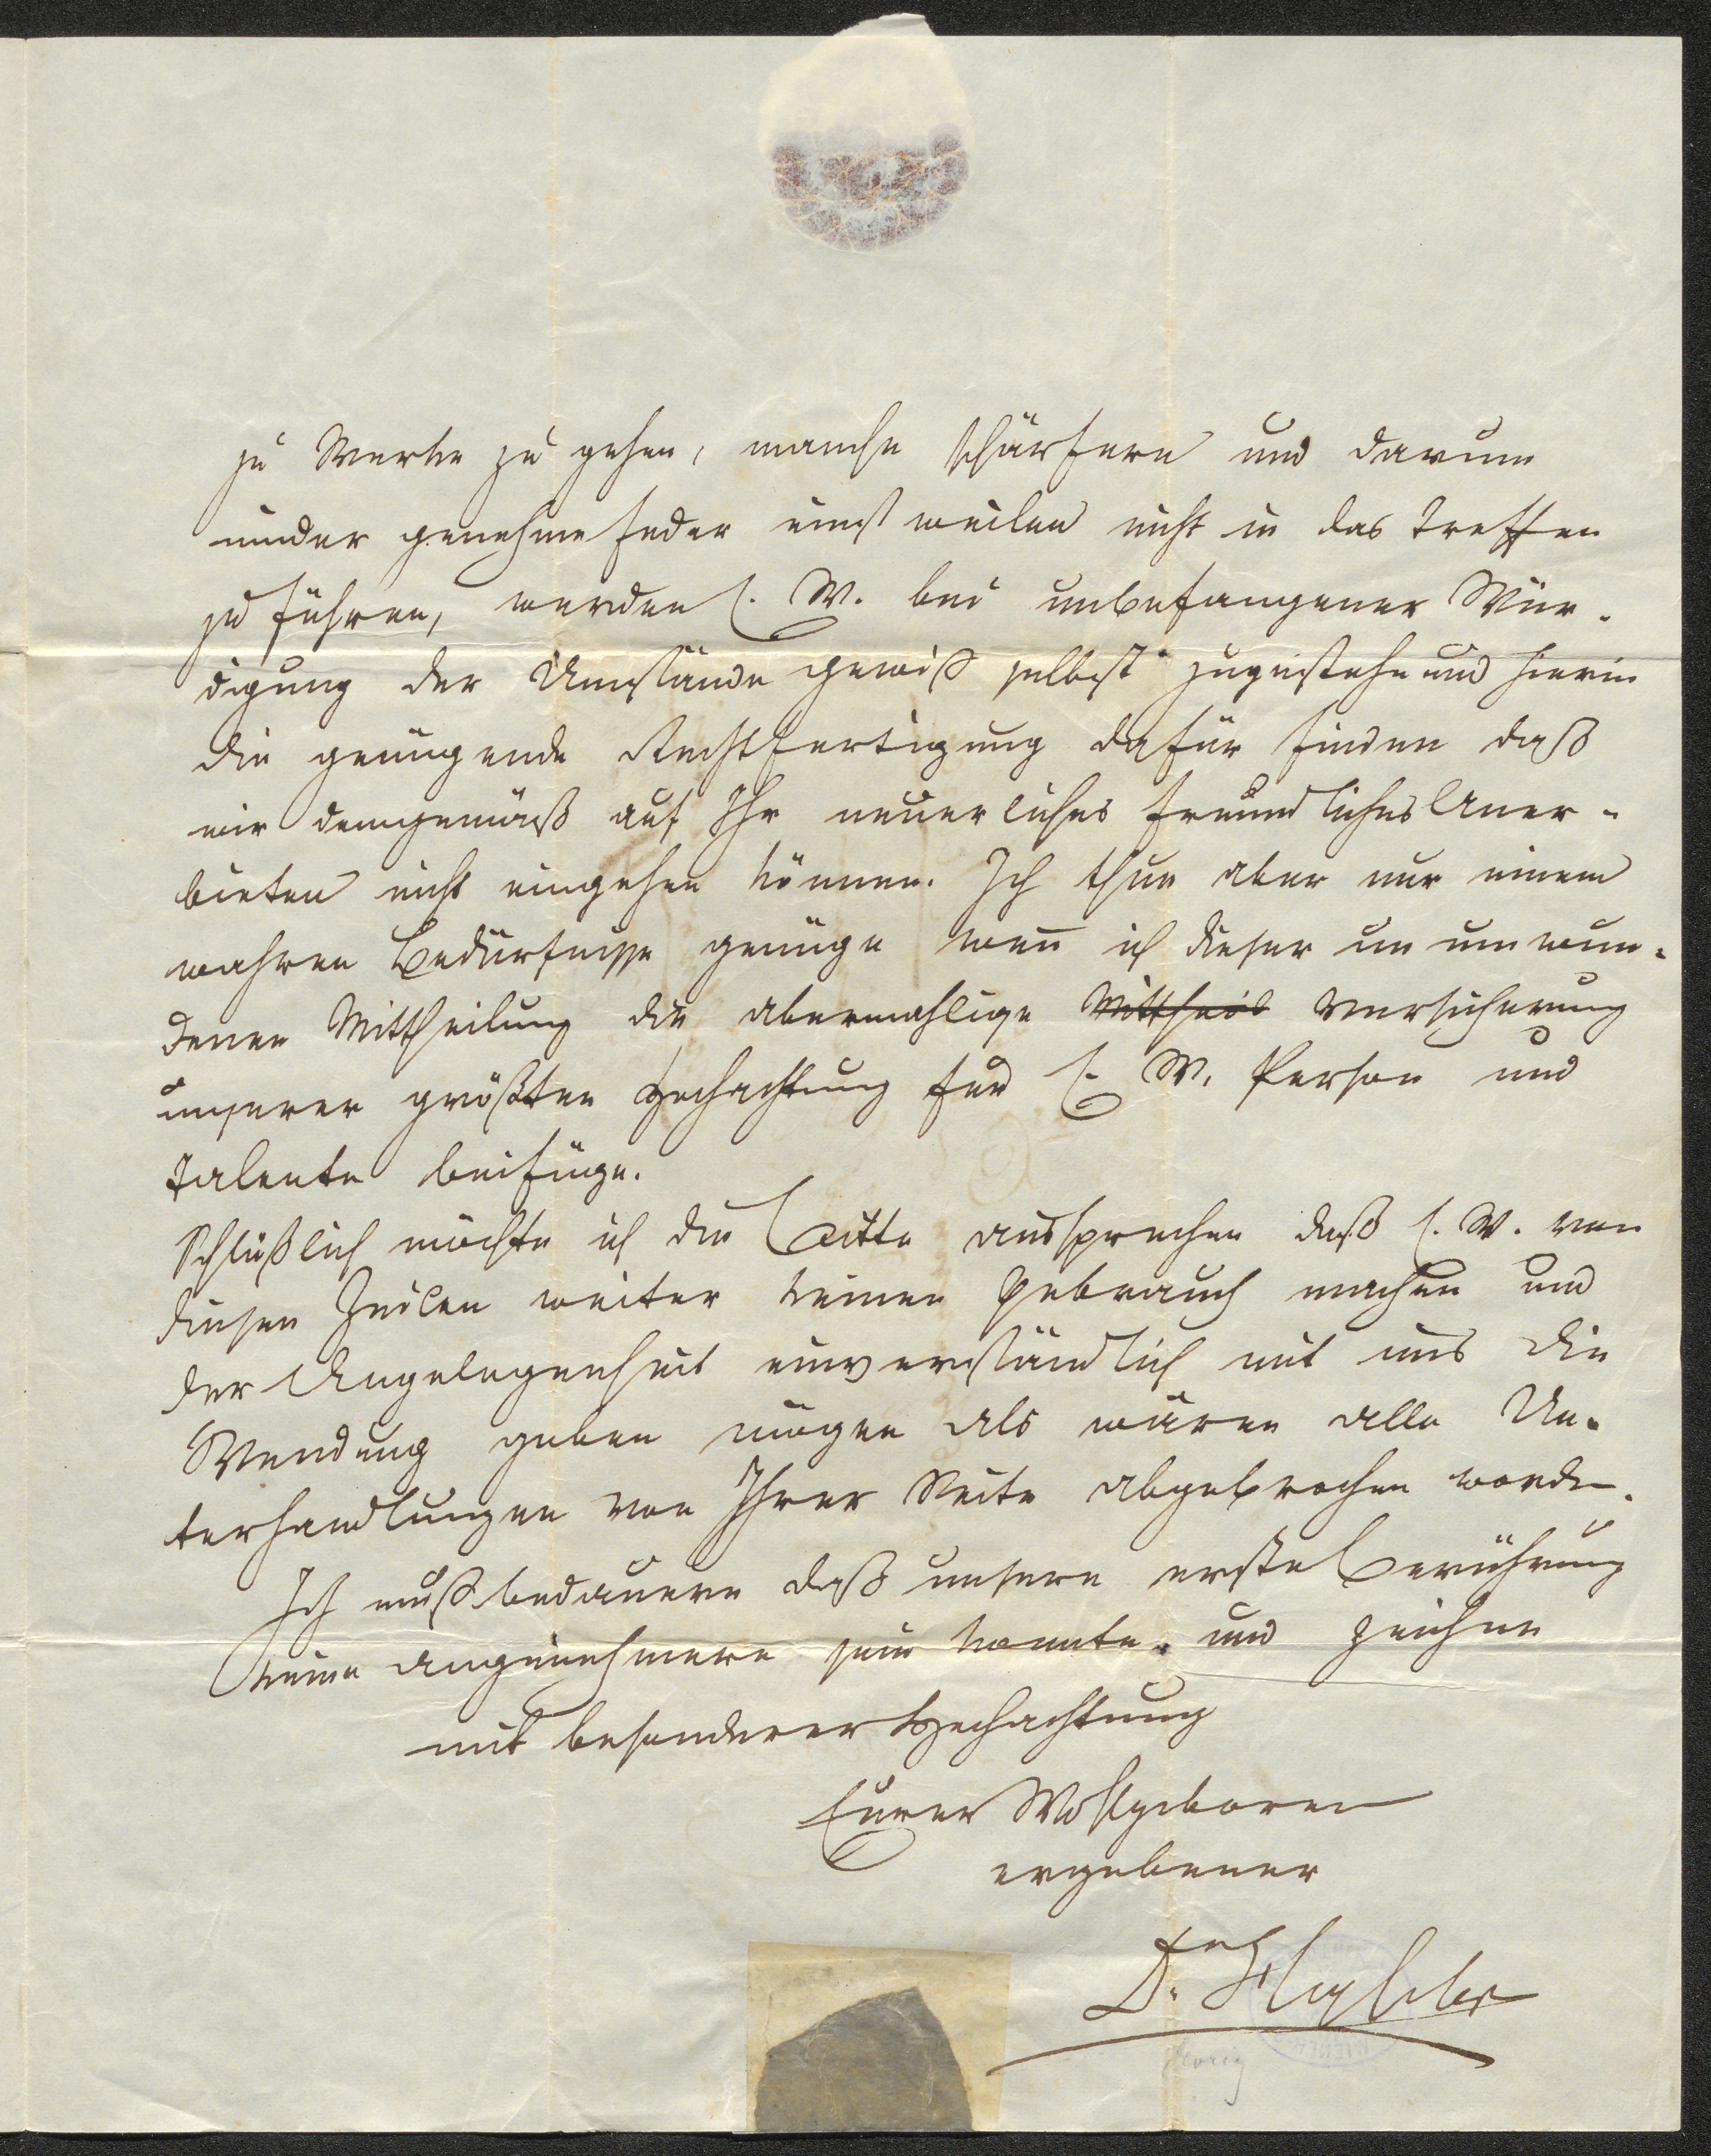 zu Werke zu gehen, manche schärfere und darum
minder genehme Feder einstweilen nicht in das Treffen
zu führen, werden E. W. bei unbefangener Wür-
digung der Umstände gewiß selbst zugestehn und hierin
die genügende Rechtfertigung dafür finden daß
wir demgemäß auf Ihr neuerliches freundliches Aner-
bieten nicht eingehen können. Ich thue aber nur einem
wahren Bedürfnisse genüge wenn ich dieser un umwun-
denen Mittheilung die abermahlige Mittheil Versicherung
unserer größten Hochachtung für E. W. Person und
Talente beifüge.
Schlüßlich möchte ich die Bitte aussprechen daß E. W. von
diesen Zeilen weiter keinen Gebrauch machen und
der Angelegenheit einverständlich mit uns die
Wendung geben mögen als wären alle Un-
terhandlungen von Ihrer Seite abgebrochen worden.
Ich muß bedauern daß unsere erste Berührung
keine angenehmere sein konnte und zeichne
mit besonderer Hochachtung
Eurer Wohlgeboren
ergebener
D.